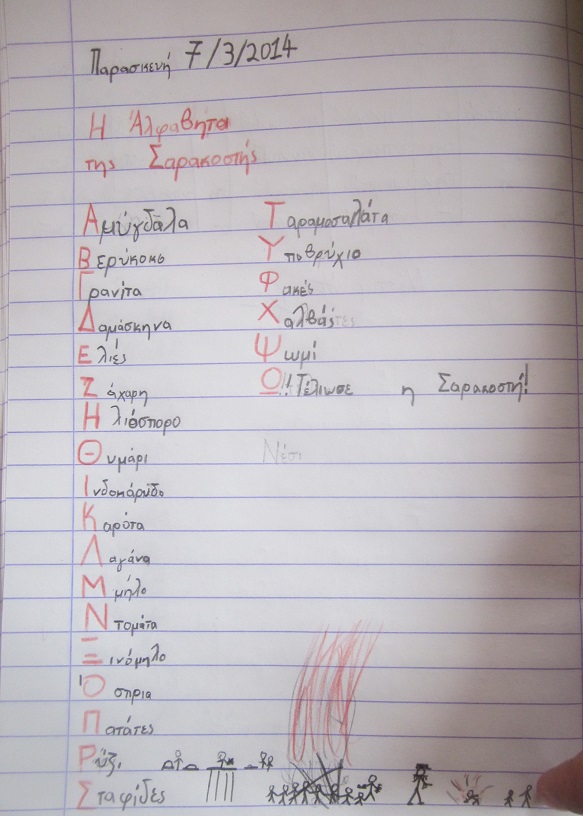 Παρασκευή 7/3/2014
Η Άλφαβήτα
της Σαρακοστής
Αμύγδαλα
Βερύκοκο
Γρανίτα
Δαμάσκηνα
Ελιές
Ζάχαρη
Ηλιόσπορο
Θυμάρι
Ινδοκάρυδο
Καρότα
Λαγάνα
Μμήλο
Ντομάτα
Ξινόμηλο
Όσπρια
Πατάτες
Ρύζι
Σταφίδες
Ταραμοσαλάτα
Υποβρύχιο
Φακές
Χαλβάς
Ψωμί
Ω!! Τέλιωσε η Σαρακοστή!